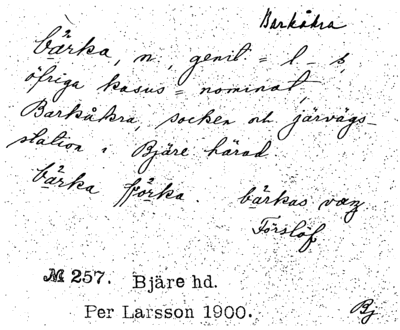 Barkåkra
bä̀rka, n., genit. = l - s,
öfriga kasus = nominat,
Barkåkra, socken och järvägs-
station i Bjäre härad
bä̀rka çö̀rka. bä̀rkas væg
Förslöf
№ 257. Bjäre hd.
Per Larsson 1900.
Bj